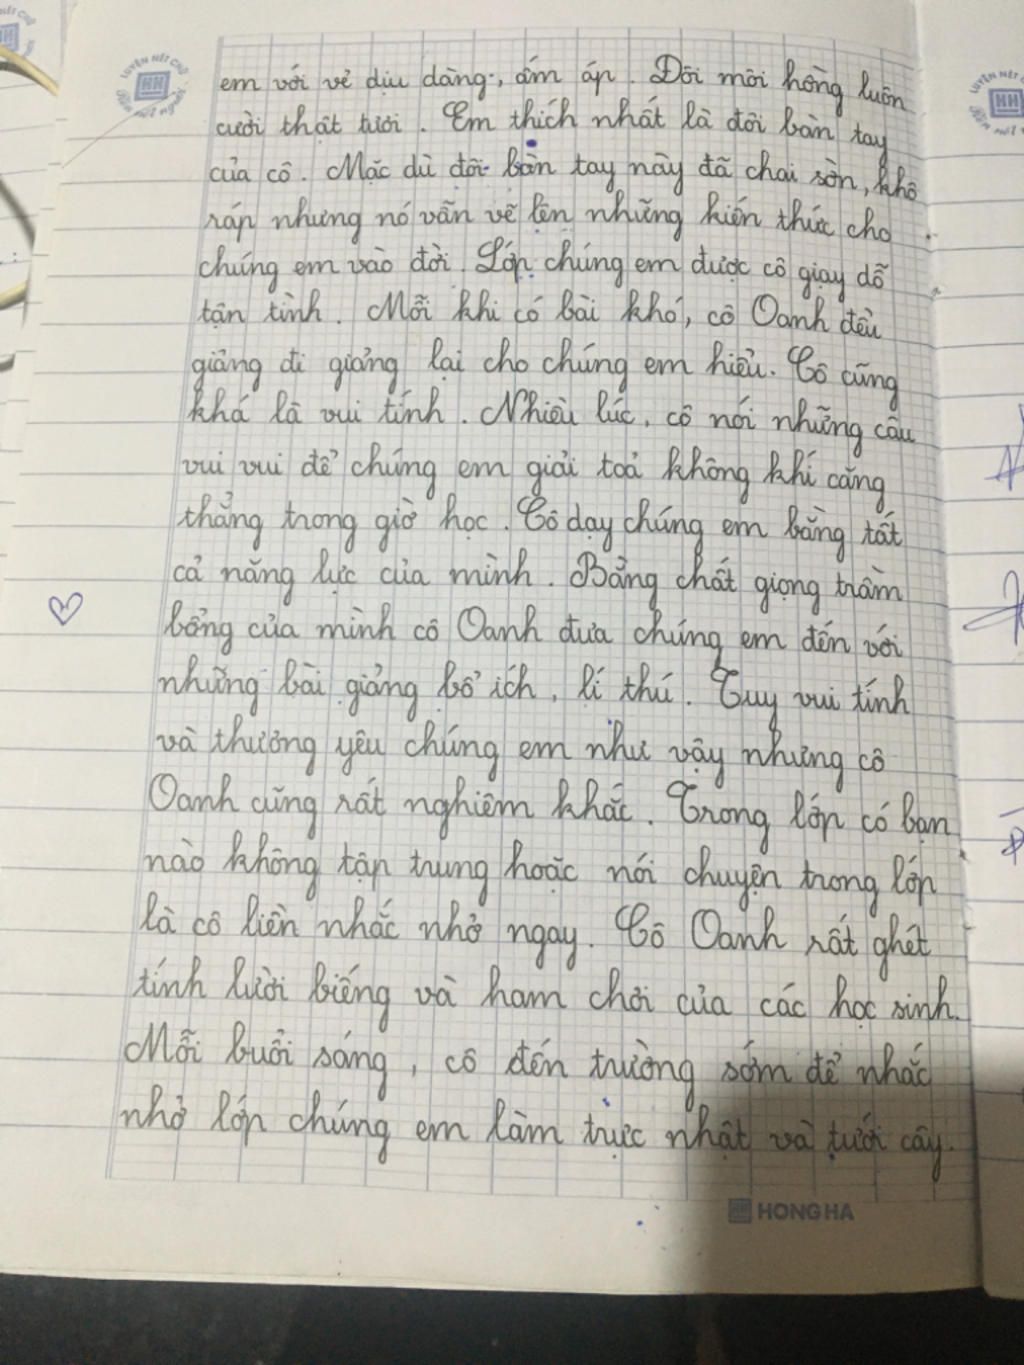 em với vẻ dịu dàng, ấm áp. Đôi môi hồng luôn
cười thật tươi. Em thích nhất là đôi bàn tay
của cô. Mặc dù đôi bàn tay này đã chai sờn, khô
ráp nhưng nó vẫn vẽ lên những kiến thức cho
chúng em vào đời. Lớp chúng em được cô giạy dỗ
tận tình. Mỗi khi có bài khó, cô Oanh đều
giảng đi giảng lại cho chúng em hiểu. Cô cũng
khá là vui tính. Nhiều lúc, cô nói những câu
vui vui để chúng em giải toả không khí căng
thẳng trong giờ học. Cô dạy chúng em bằng tất
cả năng lực của mình. Bằng chất giọng trầm
bổng của mình cô Oanh đưa chúng em đến với
những bài giảng bổ ích, lí thú. Tuy vui tính
và thương yêu chúng em như vậy nhưng cô
Oanh cũng rất nghiêm khắc. Trong lớp có bạn
nào không tập trung hoặc nói chuyện trong lớp
là cô liền nhắc nhở ngay. Cô Oanh rất ghét
tính lười biếng và ham chơi của các học sinh.
Mỗi buổi sáng, cô đến trường sớm để nhắc
nhở lớp chúng em làm trực nhật và tưới cây.
HONG HA
LUYỆN NÉT CHỮ
Rèn nết người
HH
LUYỆN NÉT
HH